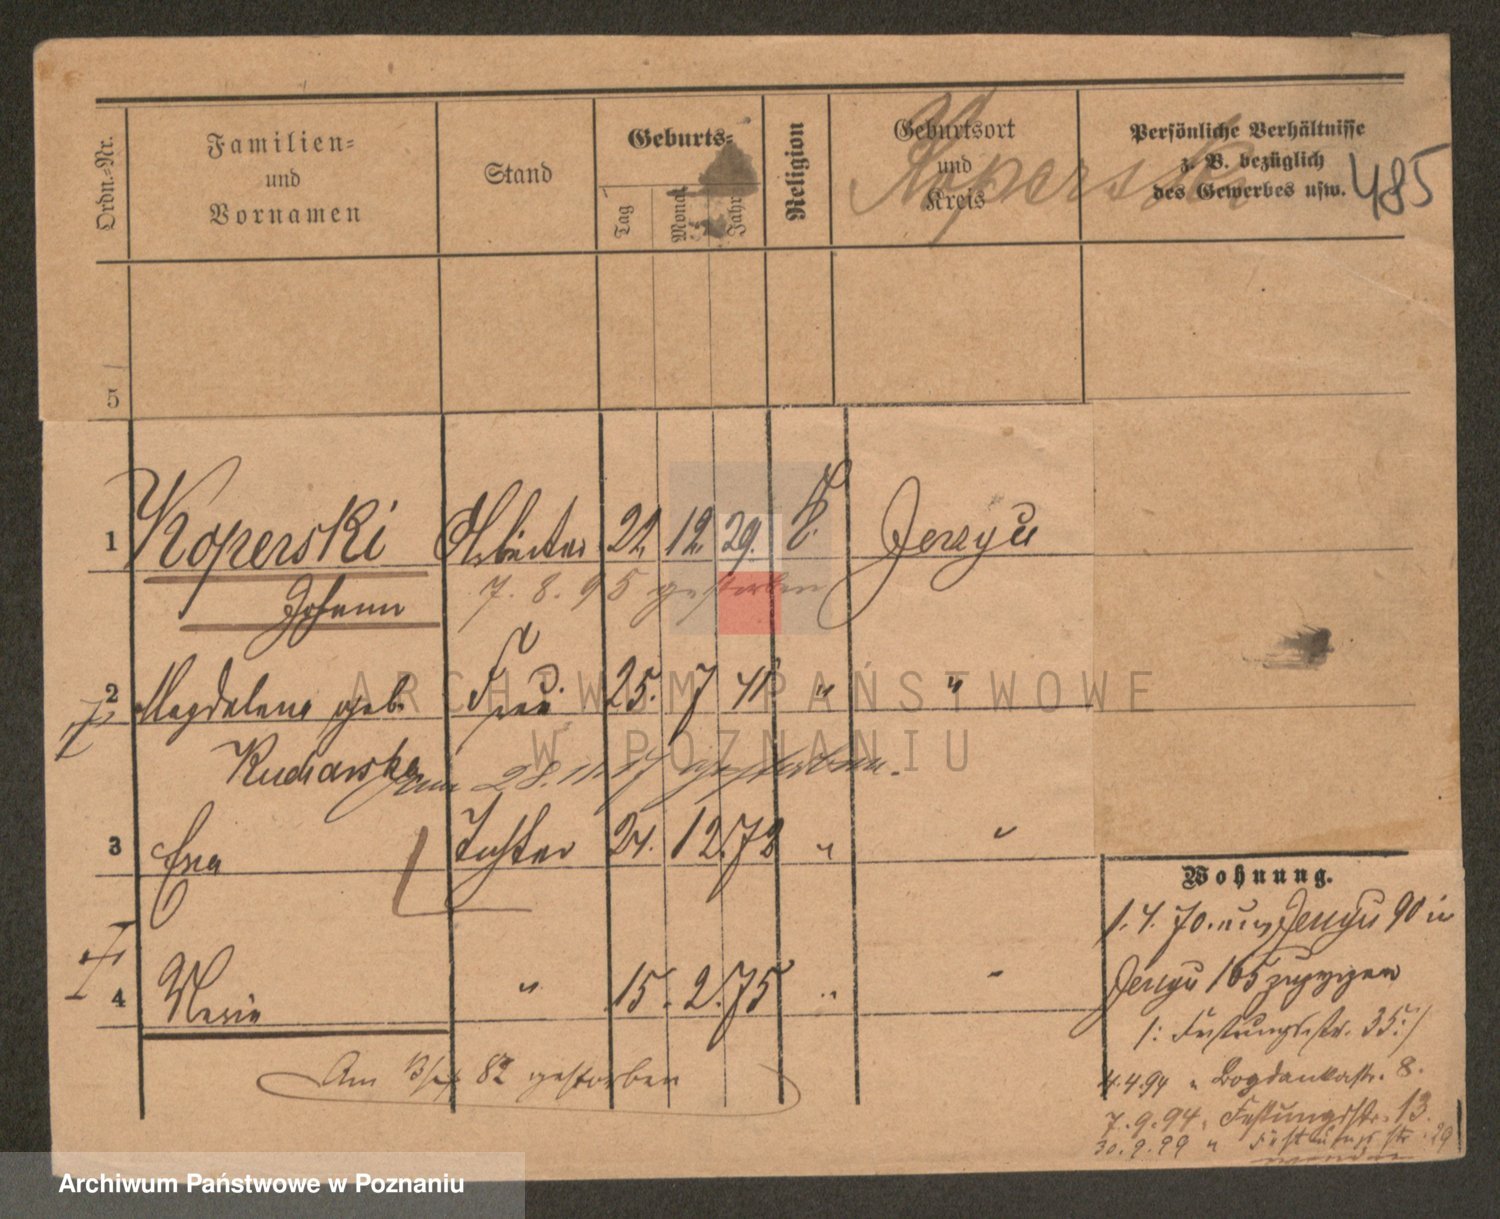 Ordn.-Nr.
Familien-
und
Vornamen
Stand
Geburts-
Tag
Monat
Jahr
Religion
Geburtsort
und
Kreis
Koperski
Persönliche Verhältnisse
z. B. bezüglich
des Gewerbes usw.
485
5
1 Koperski Arbeiter 22. 12. 29. K. Jerzyce
Johann
7. 8. 95 gestorben
2 Magdalena geb. Frau 25. 7 41 " "
Kucharska
am 28. 11. 17 gestorben.
3 Eva Tochter 24. 12. 72 " "
4 Marie " 15. 2. 75 " "
Am 82 gestorben
Wohnung.
1. 4. 70. aus Jerzyce 90 in
Jerzyce 165 zugezogen
/: Festungsstr. 35 :/
4.4.94 " Bogdankastr. 8.
7.9.94. Festungsstr. 13.
30.9.99 " Festungsstr. 29
wenden
ARCHIWUM PAŃSTWOWE
W POZNANIU
Archiwum Państwowe w Poznaniu